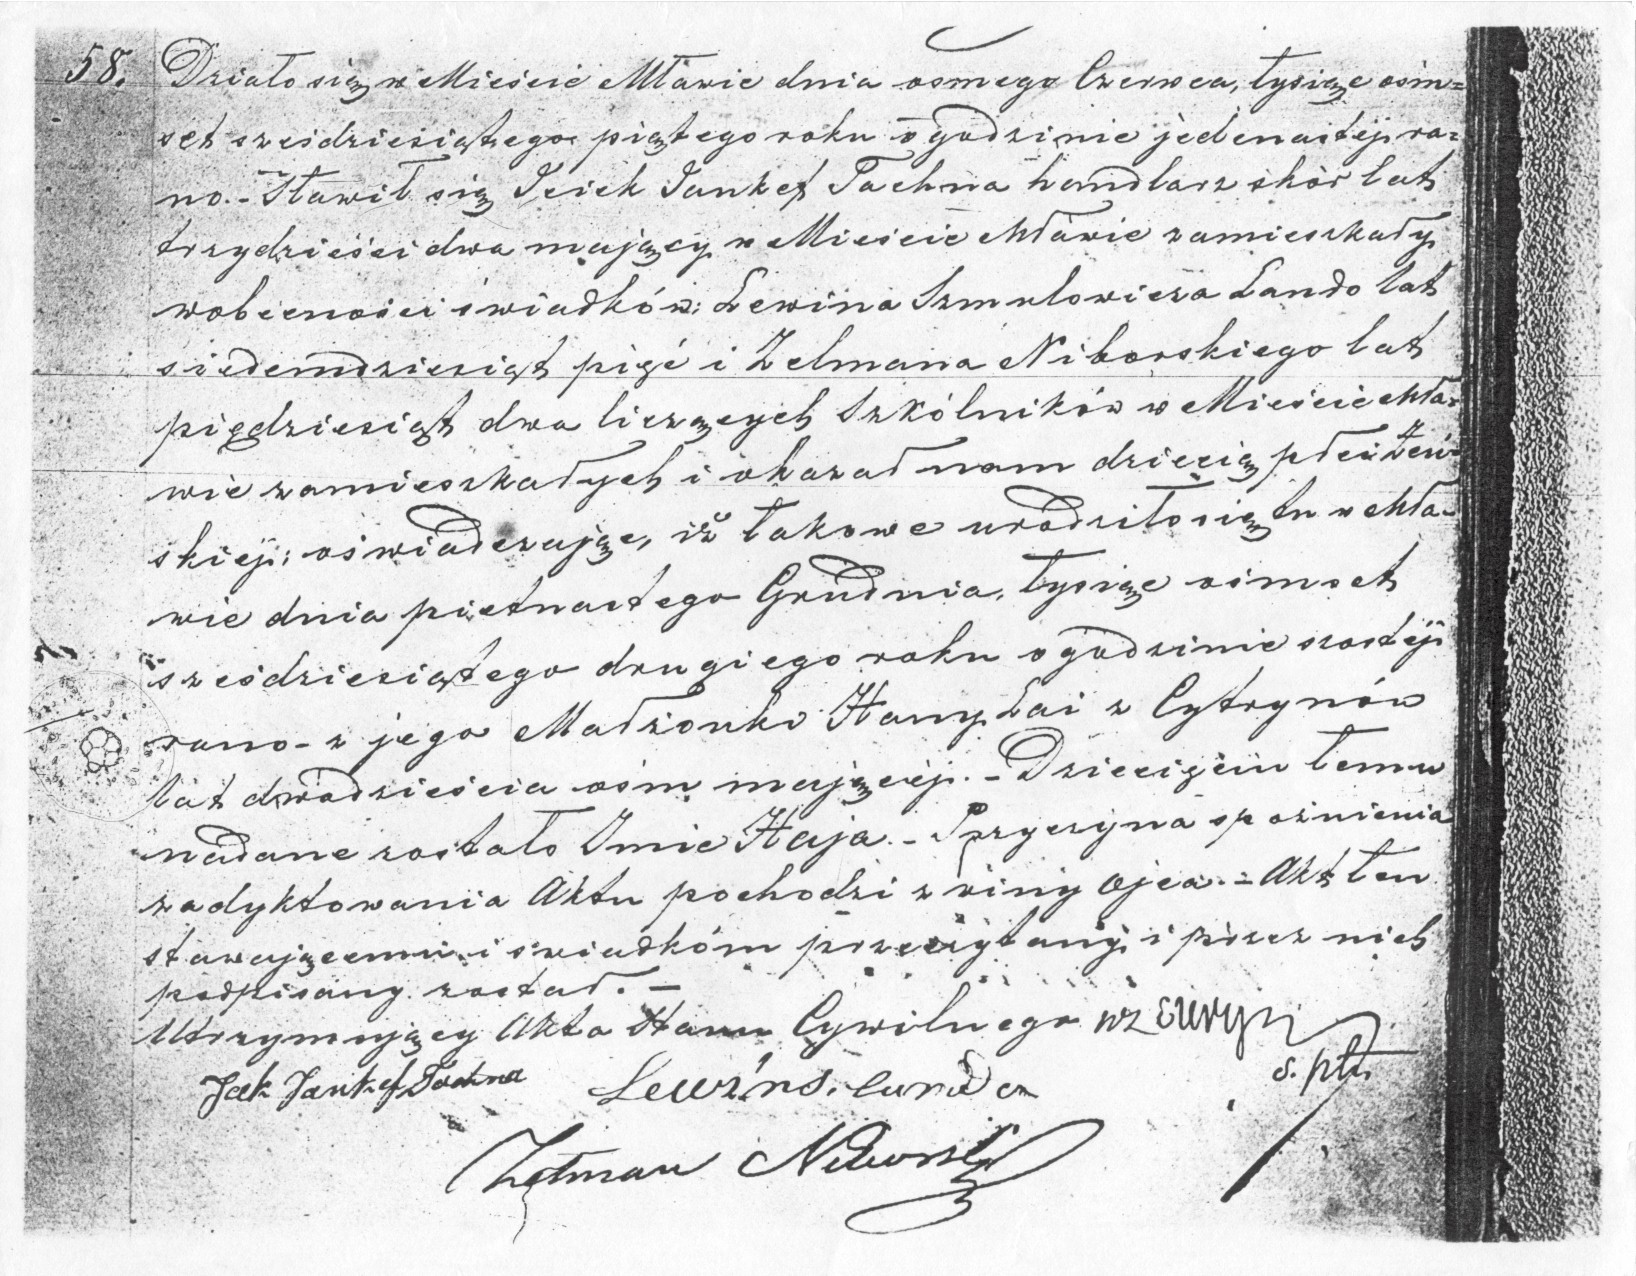 58. Działo się w Mieście Mławie dnia osmego Czerwca, tysiąc ośm=
set sześdziesiątego piątego roku o godzinie jedenastej ra=
no. - Stawił się Icick Jankef Tachna handlarz skór lat
trzydzieści dwa mający w Mieście Mławie zamieszkały
wobecności świadków: Lewina Szmulowicza Lando lat
siedemdziesiąt pięć i Zelmana Niborskiego lat
piędziesiąt dwa liczących Szkólników w Mieście Mła=
wie zamieszkałych i okazał nam dziecię płci żeń=
skiej; oświadczając, iż takowe urodziło się tu w Mła=
wie dnia pietnastego Grudnia, tysiąc ośmset
sześdziesiątego drugiego roku o godzinie szostej
rano - z jego Małżonki Hany Łai z Cytrynów
lat dwadzieścia ośm mającej. - Dziecięciu temu
nadane zostało Imie Haja. - Przyczyna spoznienia
zadyktowania Aktu pochodzi z winy Ojca. - Akt ten
stawającemu i świadkóm przeczytany i przez nich
podpisany został. -
Utrzymujący Akta Stanu Cywilnego
Jcek Jankef Tachna Lewin S. Landa
Zelman Niborski